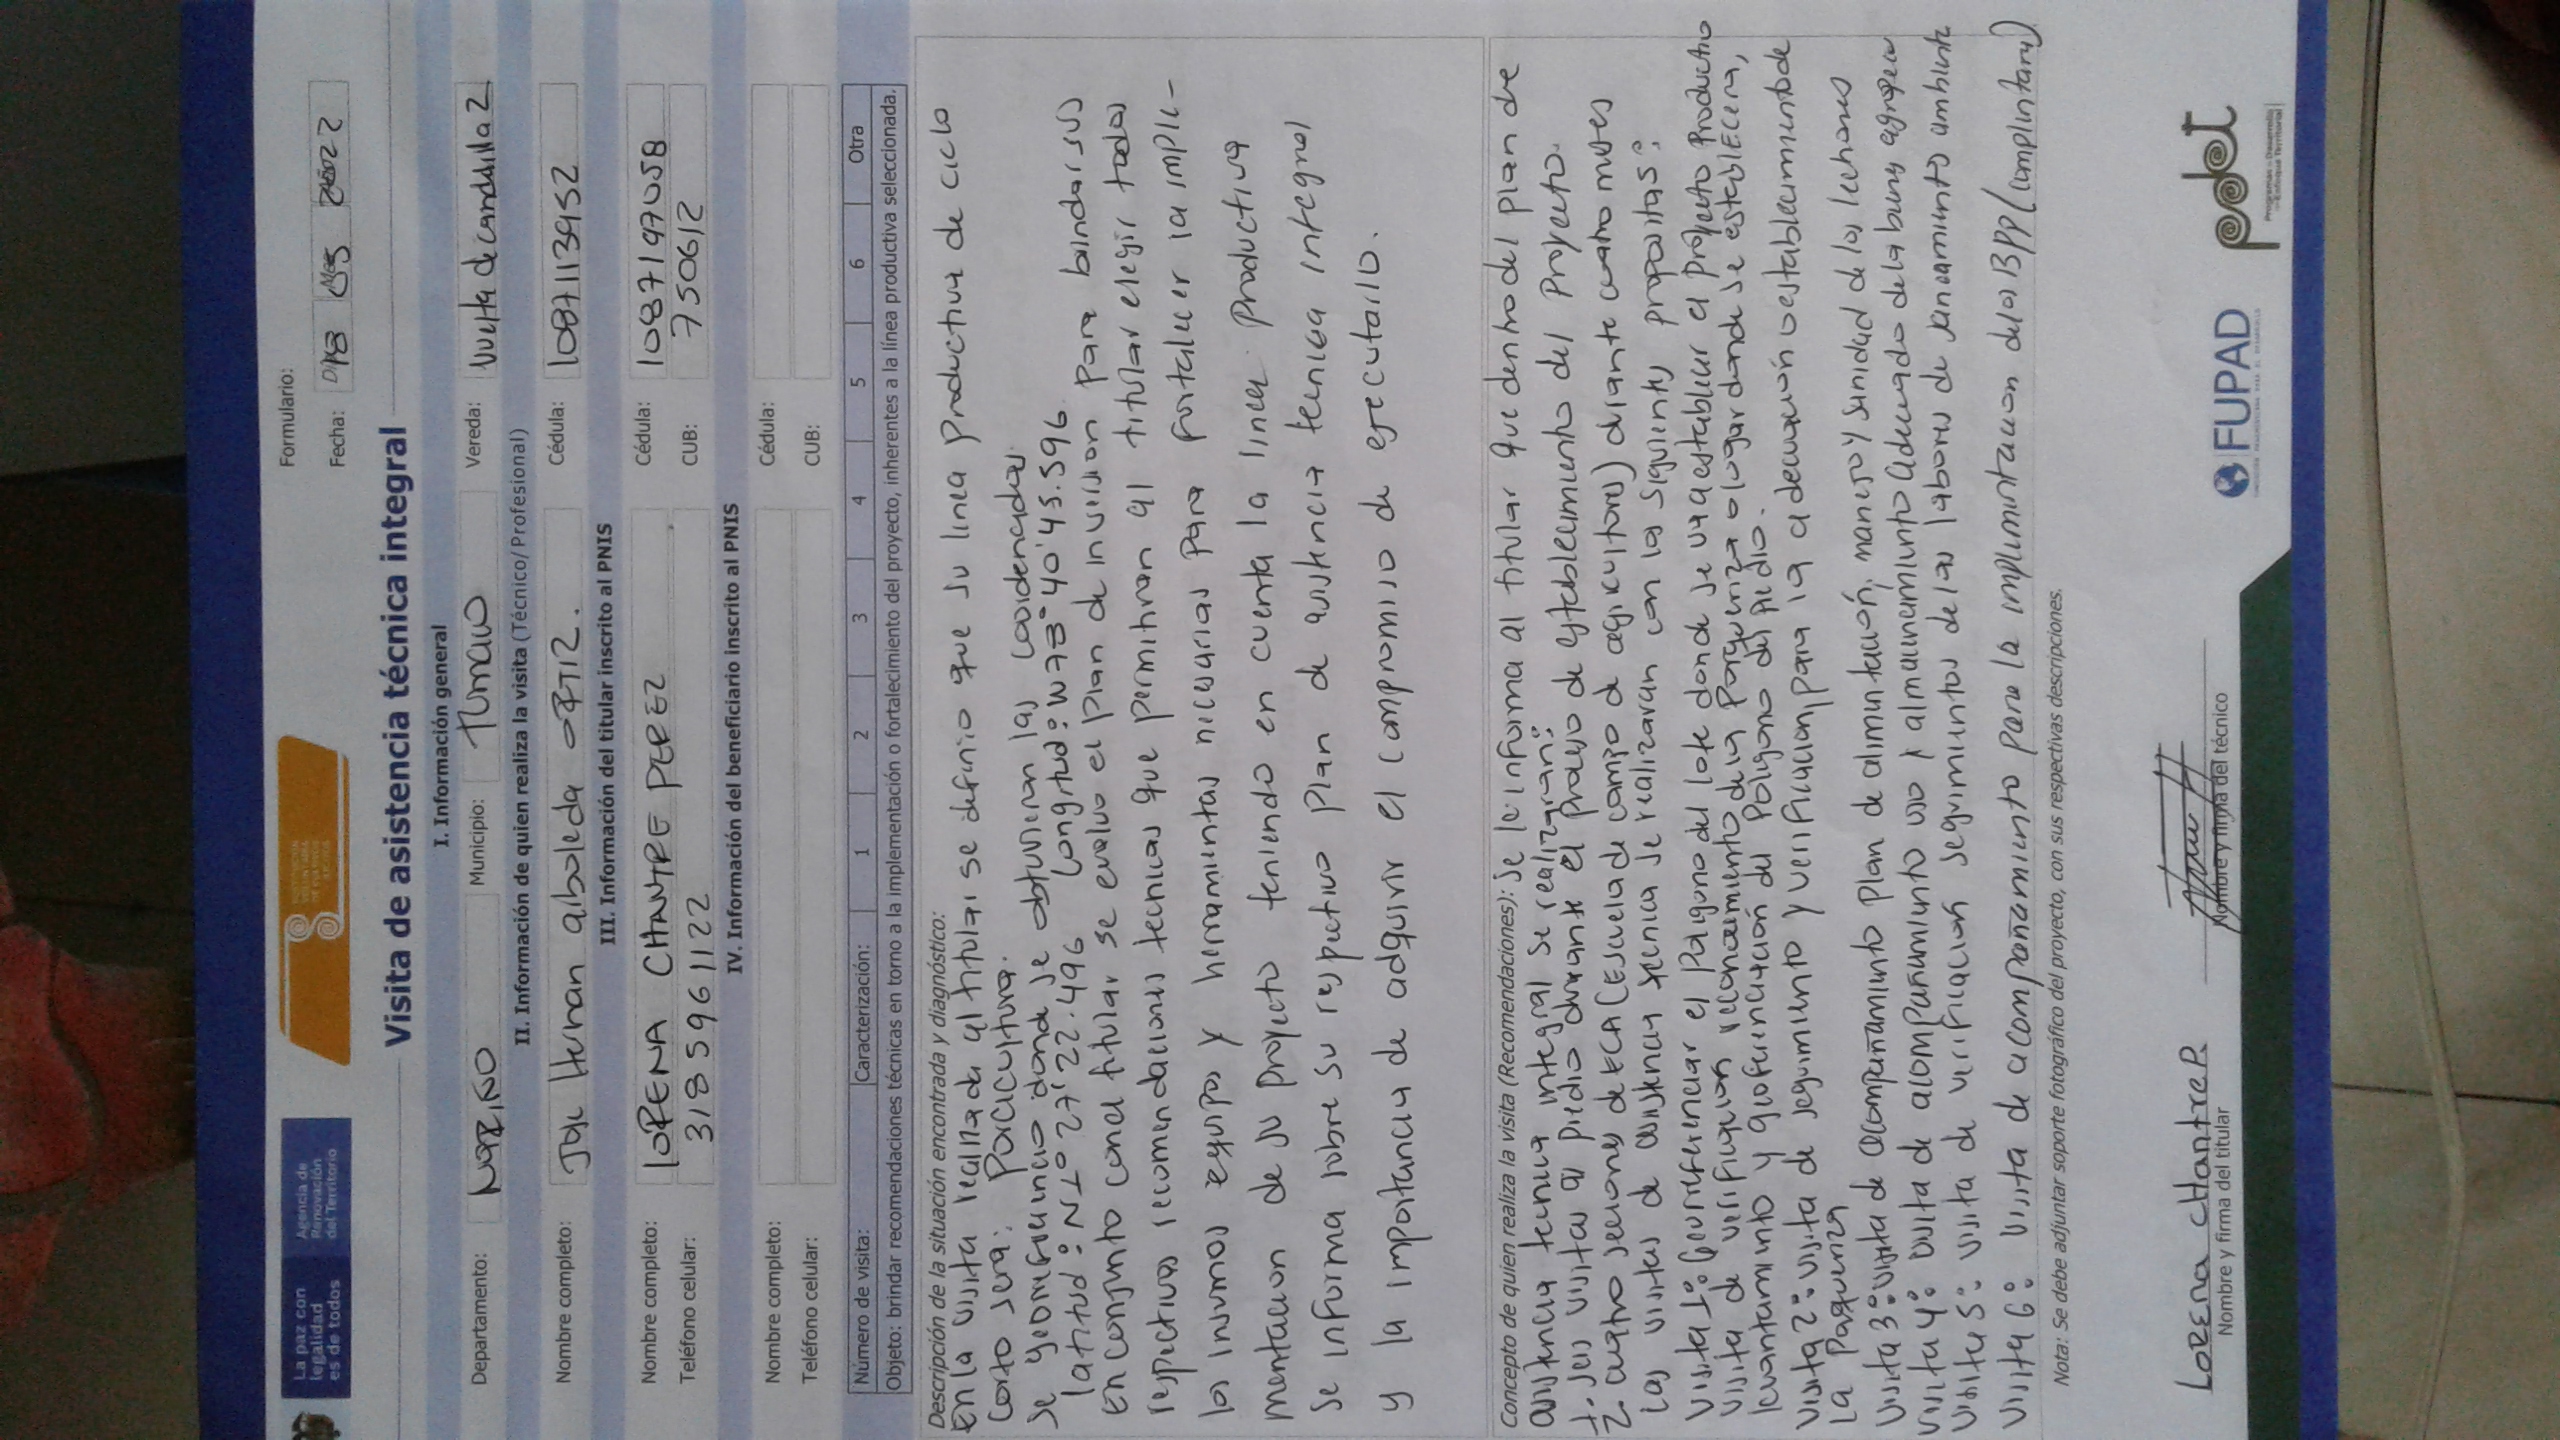 La paz con
legalidad
es de todos
Agencia de
Renovación
del Territorio
Formulario:
Fecha: 2022
Visita de asistencia técnica integral
I. Información general
Departamento: NARIÑO Municipio: TUMACO Vereda: Vuelta de candelilla 2
II. Información de quien realiza la visita (Técnico/Profesional)
Nombre completo: Jose Hernan alboleda ORTIZ. Cédula: 1087113952
III. Información del titular inscrito al PNIS
Nombre completo: LORENA CHANTRE PEREZ Cédula: 1087197058
Teléfono celular: 3185961122 CUB: 750612
IV. Información del beneficiario inscrito al PNIS
Nombre completo: Cédula:
Teléfono celular: CUB:
Número de visita: Caracterización: 1 2 3 4 5 6 Otra
Objeto: brindar recomendaciones técnicas en torno a la implementación o fortalecimiento del proyecto, inherentes a la línea productiva seleccionada.
Descripción de la situación encontrada y diagnóstico:
En la visita realizada al titular se definio que su linea productiva de ciclo
corto sera: Porcicultura.
se georeferencio donde se obtuvieron las coordenadas
latitud: N1º27'22.496 Longitud: W78º40'45.596
en conjunto con el titular se evaluo el plan de inversion para brindar sus
respectivas recomendaciones tecnicas que permitiran al titular elegir todos
los insumos equipos y herramientas necesarias para fortalecer la imple-
mentacion de su proyecto teniendo en cuenta la linea productiva
se informa sobre su respectivo plan de asistencia tecnica integral
y la importancia de adquirir el compromiso de ejecutarlo.
Concepto de quien realiza la visita (Recomendaciones): se le informa al titular que dentro del plan de
asistencia tecnica integral se realizaran:
1. seis visitas al predio durante el proceso de establecimiento del proyecto.
2. cuatro sesiones de ECA (Escuela de campo de agricultores) durante cuatro meses
Las visitas de asistencia tecnica se realizaran con los siguientes propositos:
Visita 1: Georreferenciar el Poligono del lote donde se va a establecer el proyecto Productivo
visita de verificacion reconocimiento de la Porqueriza o lugar donde se establecera,
levantamiento y georeferenciación del Poligono del Predio.
Visita 2: visita de seguimiento y verificacion para la adecuación o establecimiento de
la Porqueriza
Visita 3: visita de acompañamiento plan de alimentación, manejo y sanidad de los lechones
visita 4: visita de acompañamiento uso y almacenamiento adecuado de la buna agropecu
visita 5: visita de verificacion seguimientos de las labores de saneamiento ambiente
visita 6: visita de acompañamiento para la implementacion de las BPP (complementary)
Nota: Se debe adjuntar soporte fotográfico del proyecto, con sus respectivas descripciones.
LORENA CHANTRE P.
Nombre y firma del titular
Nombre y firma del técnico
FUPAD
pdet
Programas de Desarrollo
con Enfoque Territorial